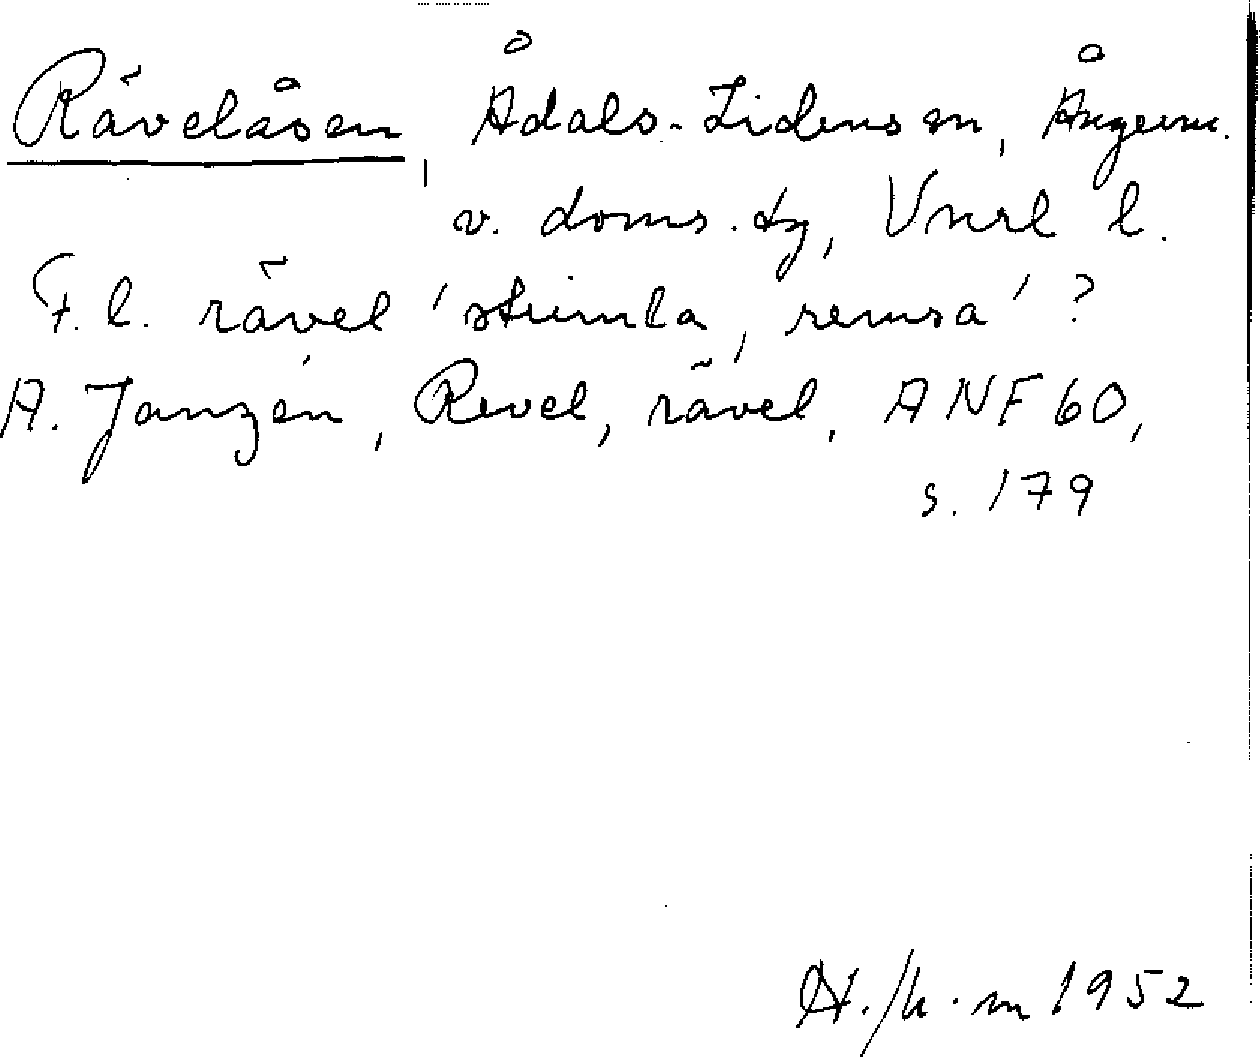 Rävelåsen, Ådals-Lidens sn, Ångerm.
v. doms. dg, Vnrl l.
F. l. rävel 'strimla, remsa'?
A. Janzén, Revel, rävel, ANF 60,
s. 179
1952